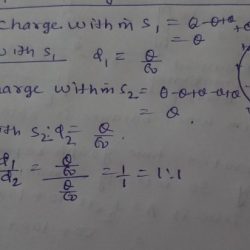 charge within S₁ = Q-Q+Q
= Q
with S₁ ϕ₁ = Q/ε₀
charge within S₂ = Q-Q+Q-Q+Q
= Q.
with S₂ ϕ₂ = Q/ε₀
ϕ₁/ϕ₂ = (Q/ε₀)/(Q/ε₀) = 1/1 = 1:1